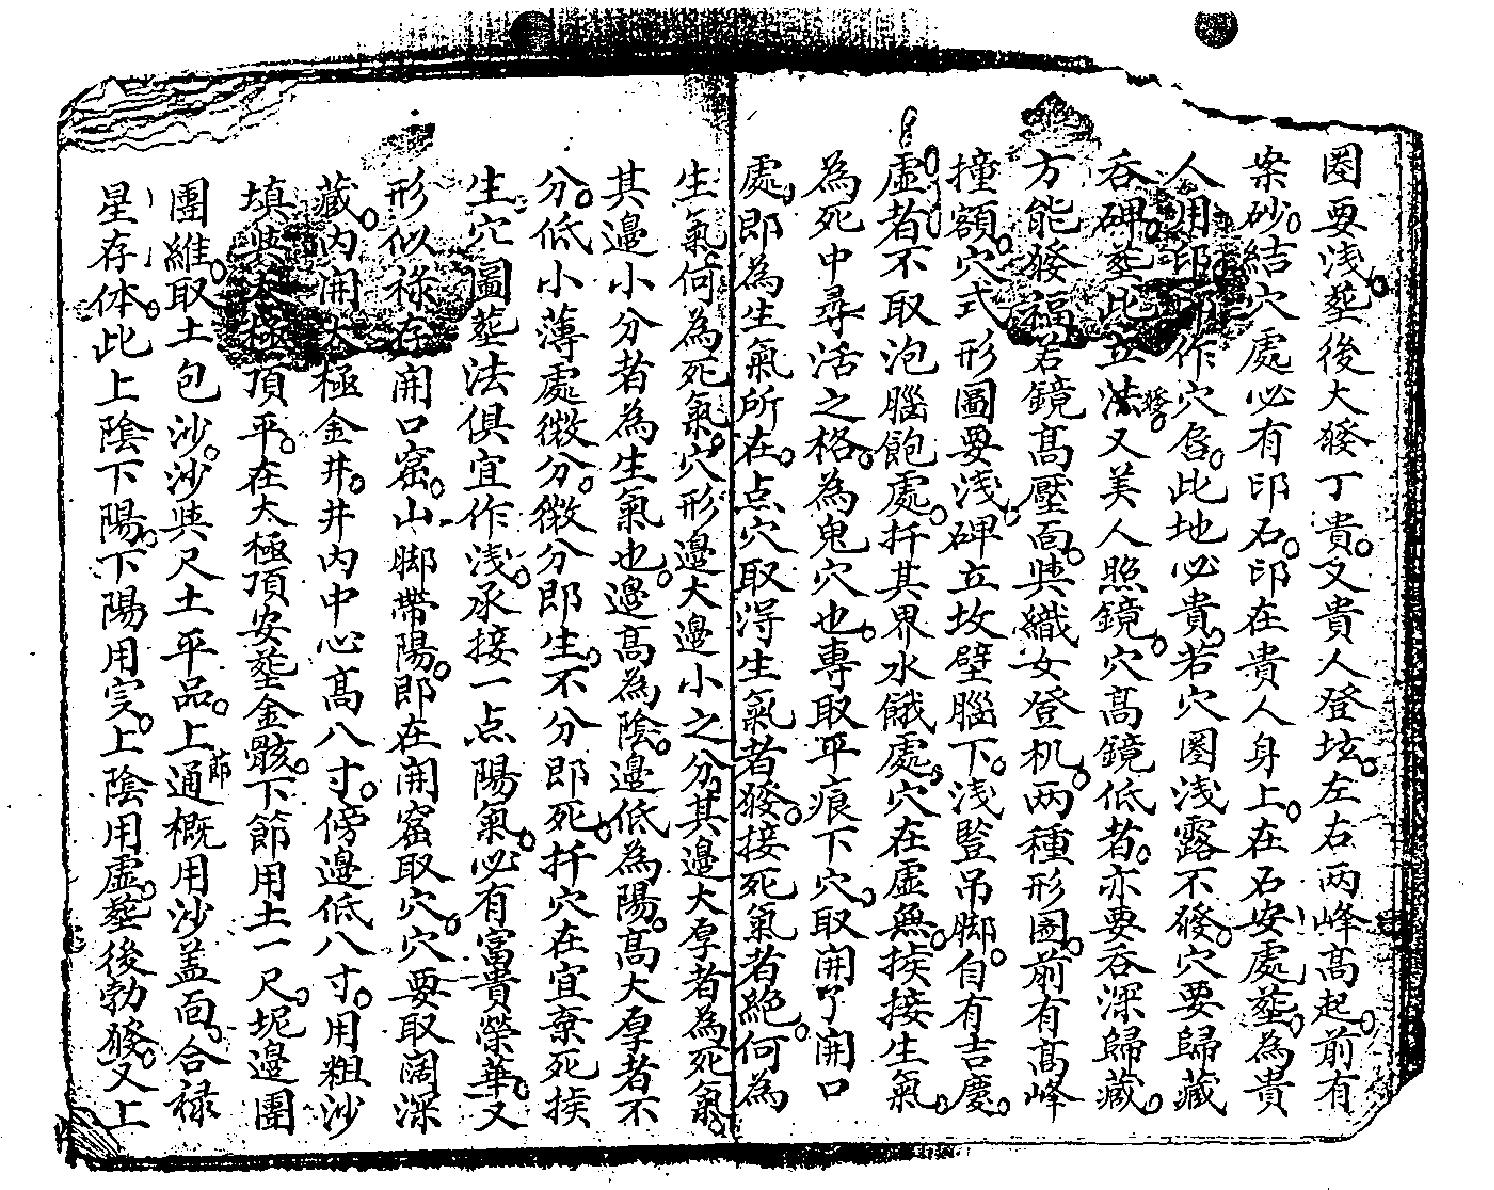 圈要淺。葬後大發丁貴。又貴人登坛。左右两峰高起。前有
案砂。結穴處必有印石。印在貴人身上。在石安處。葬為貴
人用印。即作穴启。此地必貴。若穴圈淺露不發。穴要歸藏
吞碑。葬此立法發。又美人照鏡。穴高鏡低者。亦要吞深歸藏。
方能發福。若鏡高壓面。與織女登机。两種形圖。前有高峰
撞額。穴式形圖要淺。碑立坟壁腦下。淺豎吊脚。自有吉慶。
虛者不取泡腦飽處。扦其界水餓處。穴在虛無。挨接生氣。
為死中尋活之格。為鬼穴也。專取平痕下穴。取開了開口
處。即為生氣所在。点穴取淂生氣者發。接死氣者絕。何為
生氣。何為死氣。穴形邊大邊小之分。其邊大厚者為死氣
其邊小分者為生氣也。邊高為陰。邊低為陽。高大厚者不
分。低小薄處微分。微分即生。不分即死。扦穴在宜棄死挨
生穴圖葬法俱宜作淺。承接一点陽氣。必有富貴榮華。又
形似祿存開口窟。山脚帶陽。即在開窟取穴。穴要取阔深
藏。内開太極金井。井内中心高八寸。傍邊低八寸。用粗沙
填與太極頂平。在太極頂安葬金骸。下節用土一尺。坭邊團
團維。取土包沙。沙與尺土平品。上節通概用沙盖面。合禄
星存体。此上陰下陽。下陽用实。上陰用虛。葬後勃發。又上